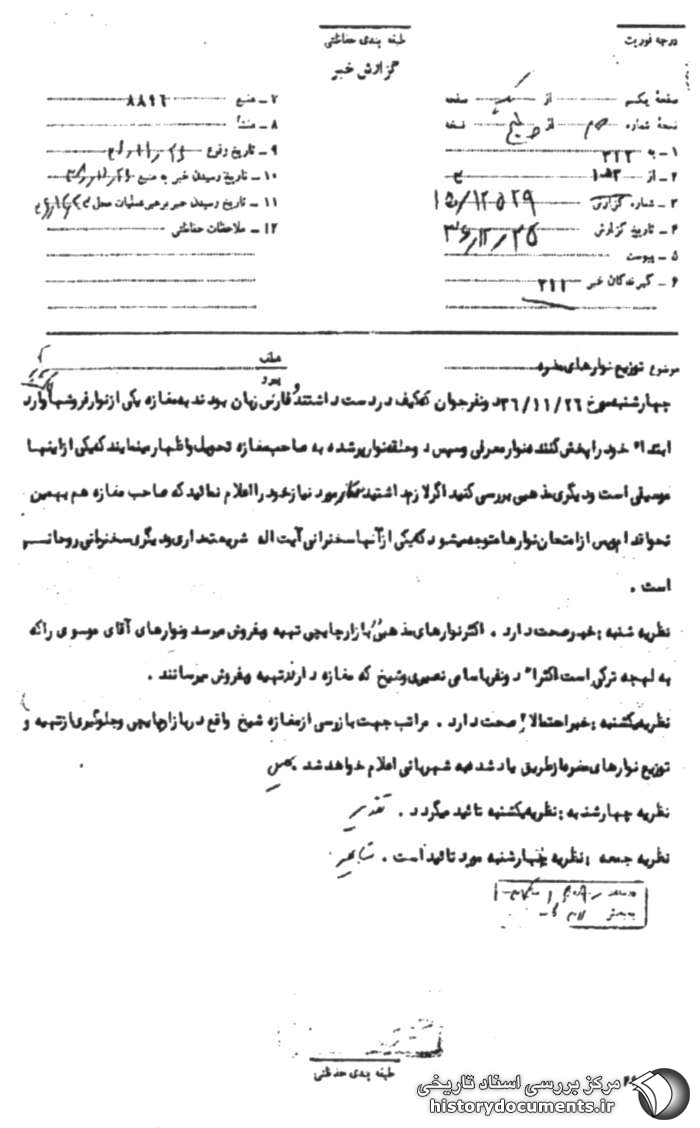 درجه فوریت
طبقه بندی حفاظتی
گزارش خبر
صفحهٔ یکم از یک صفحه
نسخهٔ شماره از نسخه
۱ - به ۳۲۳
۲ - از ۱۰۵۳
۳ - شماره گزارش ۱۵/۱۲۵۲۹
۴ - تاریخ گزارش ۳۶/۱۲/۲۵
۵ - پیوست
۶ - گیرندگان خبر ۳۲۲
۷ - منبع ۸۸۹۶
۸ - منشأ
۹ - تاریخ وقوع
۱۰ - تاریخ رسیدن خبر به منبع
۱۱ - تاریخ رسیدن خبر برهبر عملیات محل
۱۲ - ملاحظات حفاظتی
موضوع توزیع نوارهای مضره
عطف
پیرو
چهارشنبه مورخ ۳۶/۱۱/۲۶ دو نفر جوان که کیف در دست داشتند و فارس زبان بودند به مغازه یکی از نوار فروشها وارد
ابتداء خود را پخش کننده نوار معرفی و سپس دو حلقه نوار پر شده به صاحب مغازه تحویل و اظهار مینمایند که یکی از اینها
موسیقی است و دیگری مذهبی بررسی کنید اگر لازم داشتید مورد نیاز خود را اعلام نمائید که صاحب مغازه هم بهمین
نحو اقدام و پس از امتحان نوارها متوجه میشود که یکی از آنها سخنرانی آیت اله شریعتمداری و دیگری سخنرانی روحانی
است .
نظریه شنبه : خبر صحت دارد . اکثر نوارهای مذهبی بازارچایچی تهیه و بفروش میرسد و نوارهای آقای موسوی را که
به لهجه ترکی است اکثراً دو نفر باسامی نصیری و شیخ که مغازه دارند تهیه و بفروش میرسانند .
نظریه یکشنبه : خبر احتمالاً صحت دارد . مراتب جهت بازرسی از مغازه شیخ واقع در بازارچایچی و جلوگیری از تهیه و
توزیع نوارهای مضره از طریق یاد شده به شهربانی اعلام خواهد شد .
نظریه چهارشنبه : نظریه یکشنبه تائید میگردد .
نظریه جمعه : نظریه چهارشنبه مورد تائید است .
طبقه بندی حفاظتی
مرکز بررسی اسناد تاریخی
historydocuments.ir